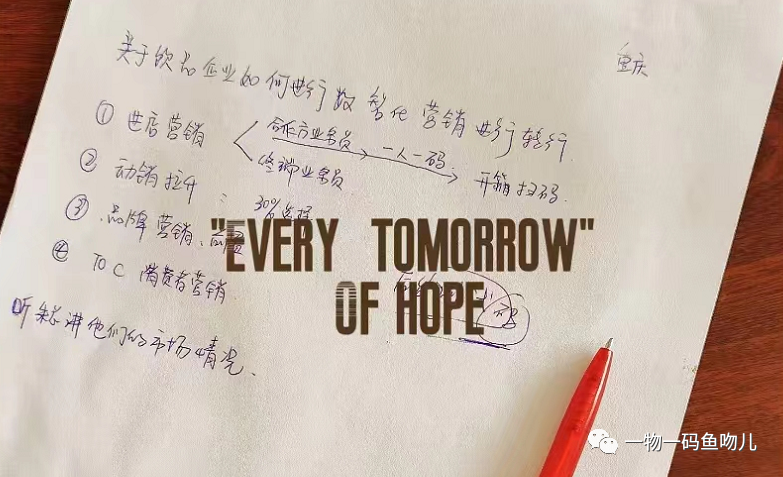 重庆
关于饮品企业如何进行数智化营销进行转行
① 进店营销
合作方业务员
一人一码
终端业务员
开箱扫码.
② 动销拉升
30%
③ 品牌营销、
④ TO C 消费者营销
"EVERY TOMORROW"
OF HOPE
听朱总讲他们的市场情况.
一物一码鱼吻儿